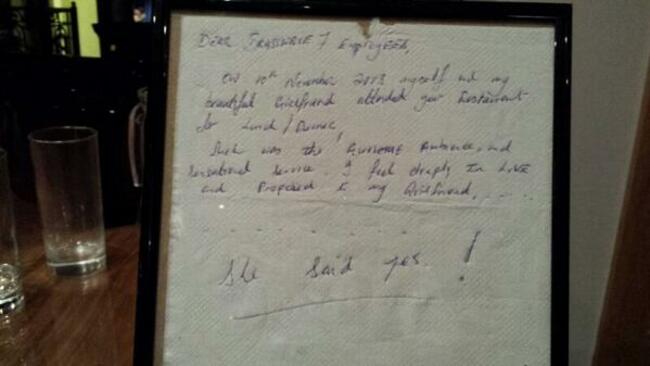 DEAR 7 EmployEES,
ON 10th November 2013 myself and my
beautiful Girlfriend attended your Restaurant
for Lunch / Dinner,
Such was the AwesomE Ambience, and
Sensational Service. I feel deeply In LovE
and Proposed to my Girlfriend, ....
. . . . . . .
She said yes !